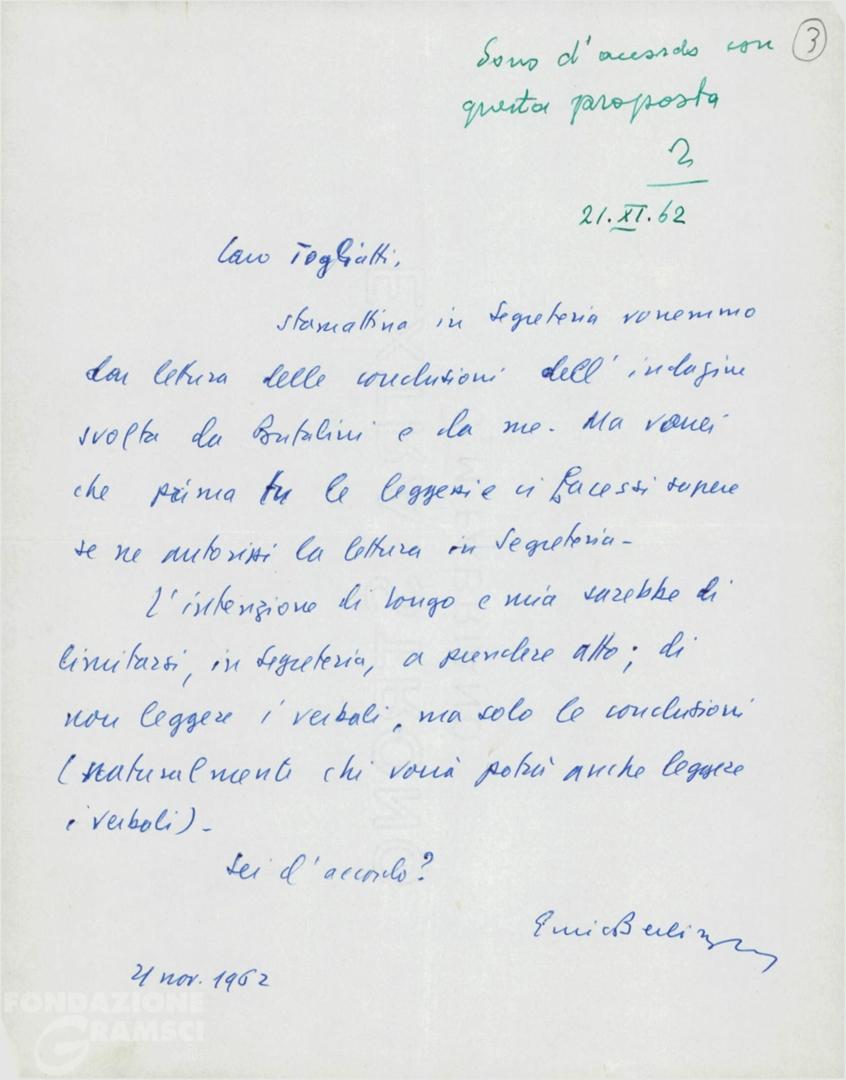 3
Sono d'accordo con
questa proposta
21.XI.62
Caro Togliatti,
stamattina in Segreteria vorremmo
dar lettura delle conclusioni dell'indagine
svolta da Bufalini e da me. Ma vorrei
che prima tu le leggessi e ci facessi sapere
se ne autorizzi la lettura in Segreteria-
L'intenzione di Longo e mia sarebbe di
limitarsi, in Segreteria, a prendere atto; di
non leggere i verbali, ma solo le conclusioni
(naturalmente chi vorrà potrà anche leggere
i verbali)-
Sei d'accordo?
Enrico Berlinguer
21 nov. 1962
FONDAZIONE
GRAMSCI